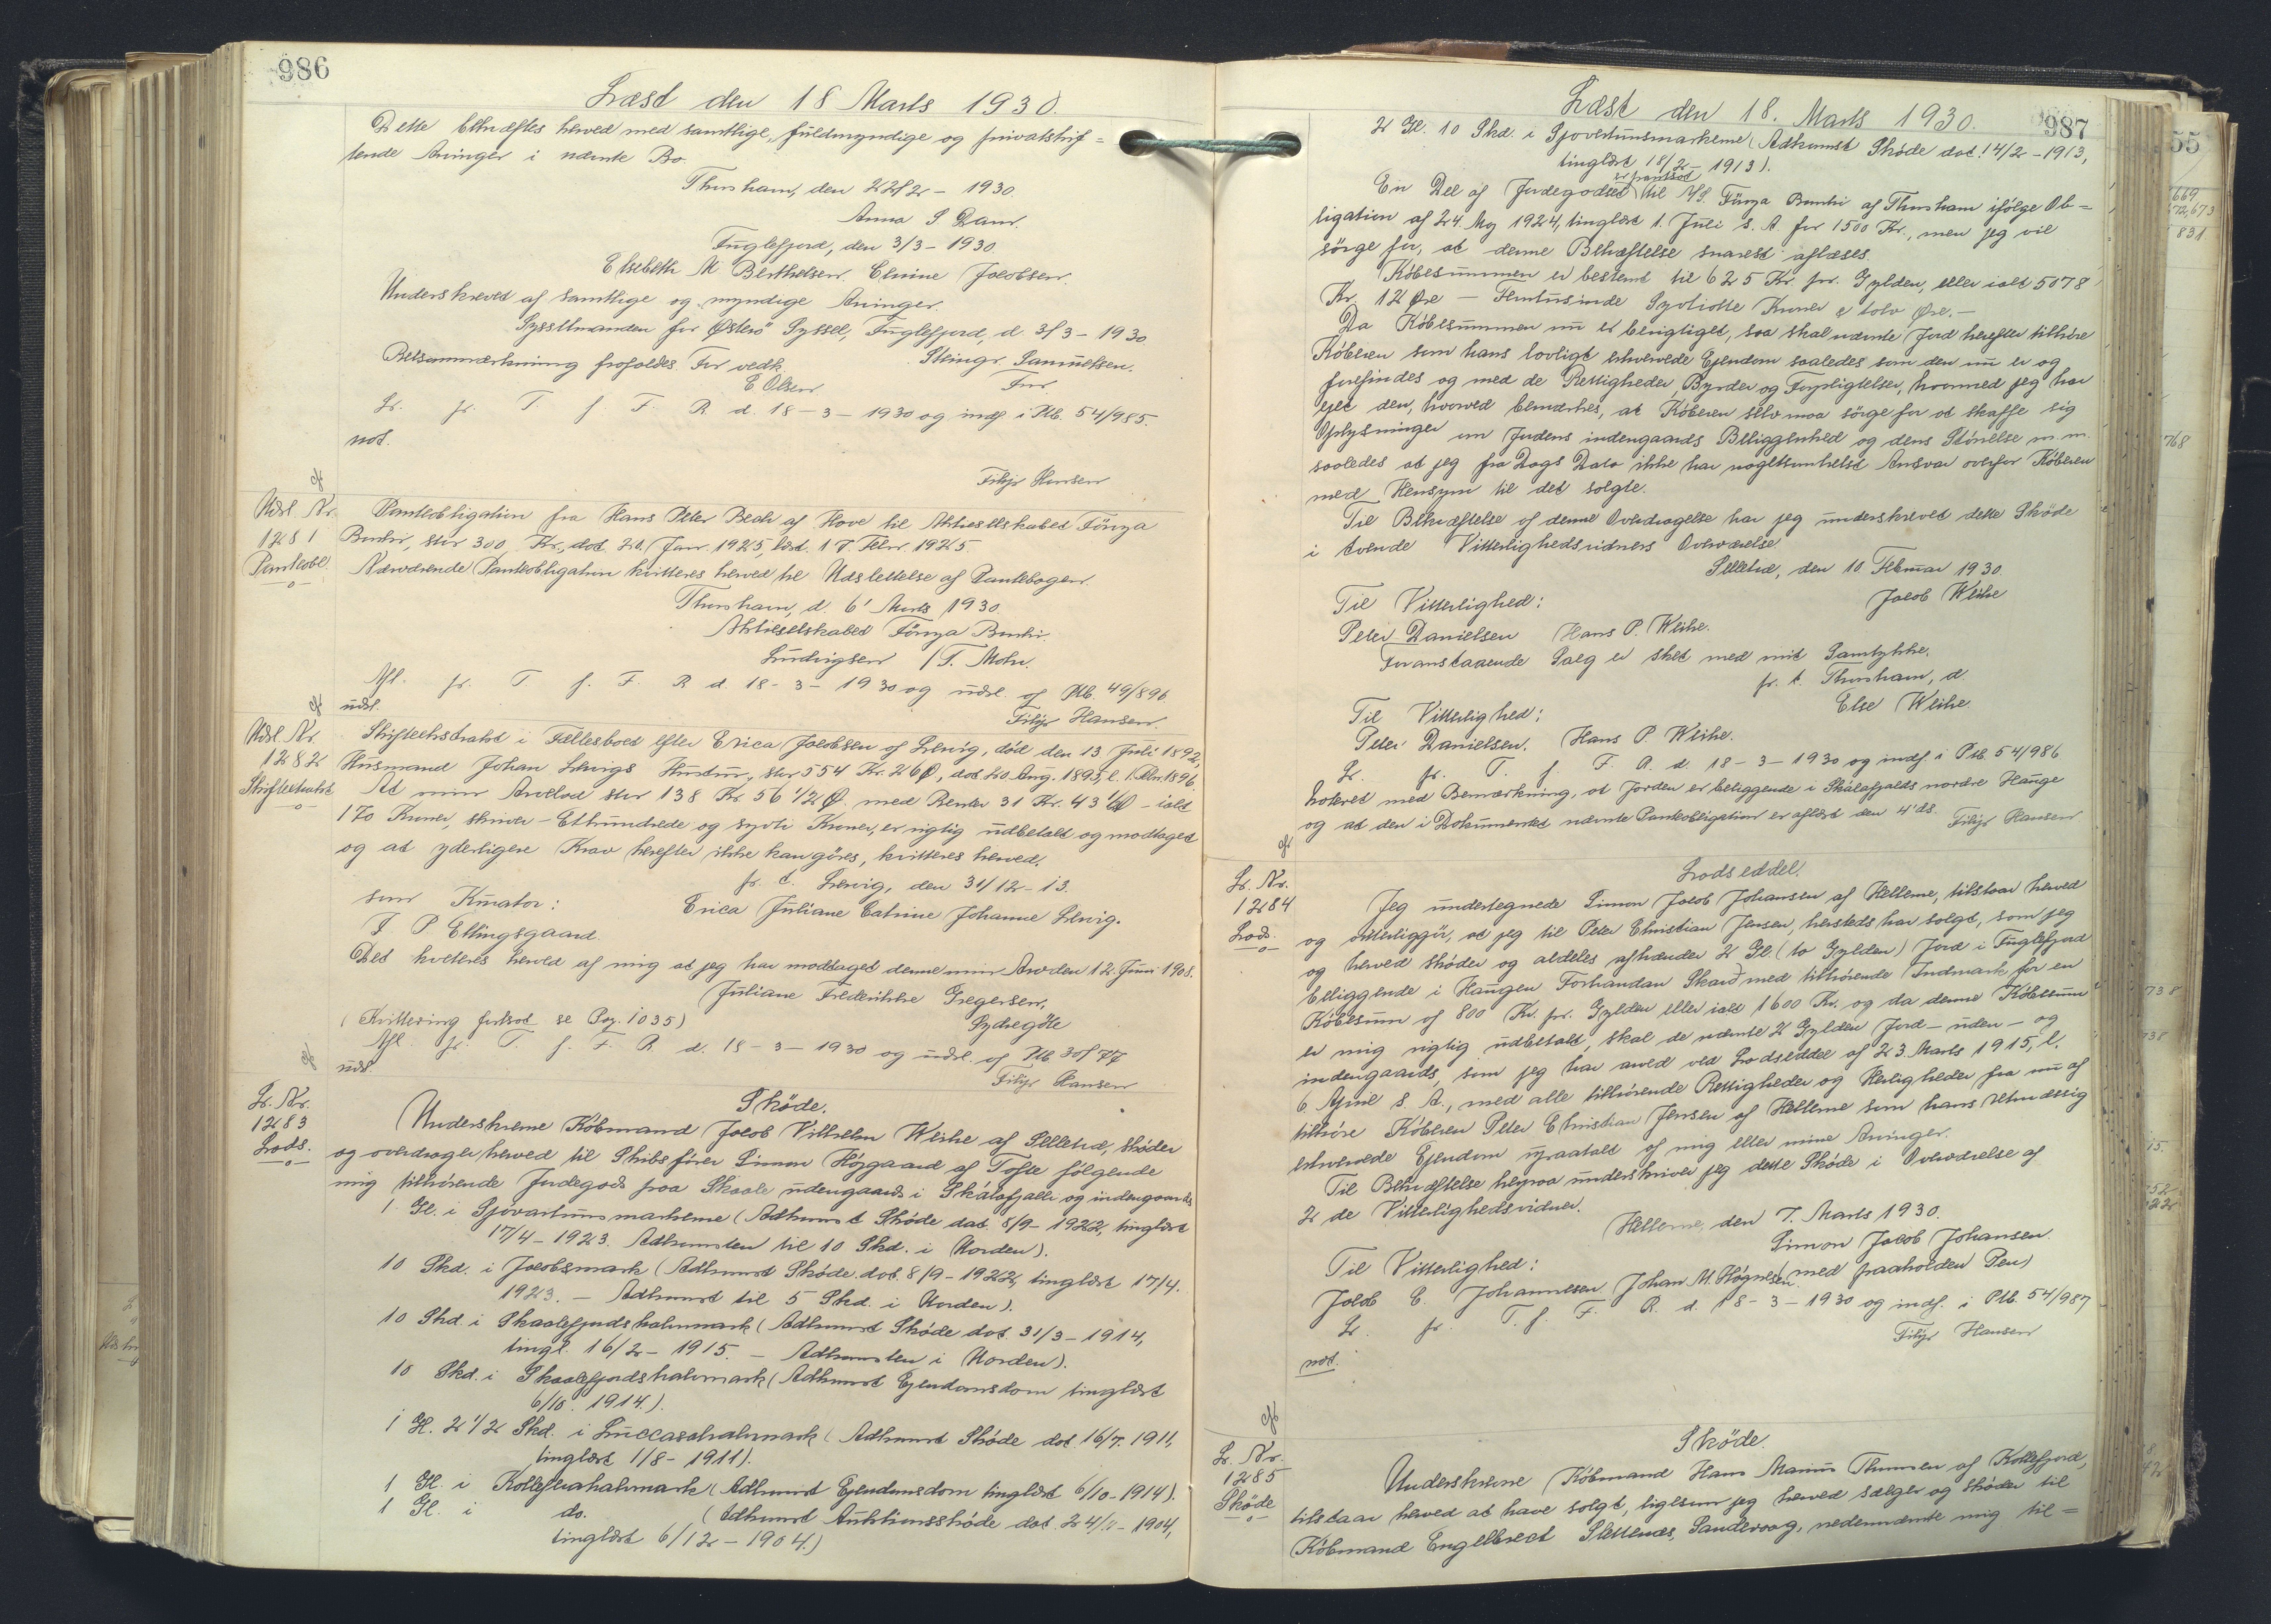 986
Læst den 18 Marts 1930.
Dette bekræftes herved med samtlige, fuldmyndige og privatskif=
tende Arvinger i nævnte Bo.
Thorshavn, den 22/2 - 1930.
Anna S Dam.
Fuglefjord, den 3/3 - 1930
Elsebeth M Berthelsen. Elmine Jacobsen.
Underskrevet af samtlige og myndige Arvinger.
Sysselmanden for Østerø Syssel, Fuglefjord, d. 3/3 - 1930
Retsanmærkning frafaldes. For vedk. Steingr. Samuelsen.
E Olsen
Lr. fr. T. f. F. R. d. 18 - 3 - 1930 og indf. i Ptb. 54/985.
not.
Filip Hansen
Udsl. Nr.
1281
Panteobl.
Panteobligation fra Hans Peter Bech af Hove til Aktieselskabet Föroya
Banki, stor 300 Kr., dat. 20. Jan. 1925, læst. 17. Febr. 1925.
Nærværende Panteobligation kvitteres herved til Udslettelse af Pantebogen.
Thorshavn, d. 6' Marts 1930.
Aktieselskabet Föroya Banki.
Ludvigsen / T. Mohr.
Afl. fr. T f. F. R d. 18 - 3 - 1930 og udsl. af Ptb. 49/896
udsl.
Filip Hansen.
Udsl. Nr.
1282
Skifteekstrakt
Skifteekstrakt i Fællesboet efter Erica Jacobsen af Lervig, död den 13 Juli 1892,
Husmand Johan Lervigs Hustru, stor 554 Kr. 26 Ø, dat. 20. Aug. 1895, l. 1. Febr. 1896.
At min Arvelod stor 138 Kr. 56 1/2 Ø. med Renter 31 Kr. 43 1/2 Ø - ialt
170 Kroner, skriver - Ethundrede og syvti Kroner, er rigtig udbetalt og modtaget
og at yderligere Krav herefter ikke kan göres, kvitteres herved.
p. t. Lervig, den 31/12 - 13.
som Kurator: Erica Juliane Catrine Johanne Lervig.
J. P Ellingsgaard.
Det kviteres herved af mig at jeg har modtaget denne min Arv den 12. Juni 1908.
Juliane Frederikke Gregersen,
(Kvittering fortsat se Pag. 1035) Sydregöte
Afl. fr. T f. F. R. d. 18 - 3 - 1930 og udsl. af Ptb 30/77
udsl.
Filip Hansen
Lr. Nr.
1283
Lods.
Sköde.
Underskrevne Köbmand Jacob Vilhelm Weihe af Selletræ, sköder
og overdrager herved til Skibsförer Simon Höjgaard af Tofte fölgende
mig tilhörende Jordegods paa Skaale udengaards i Skálafjalli og indengaards
1 Gl. i Sjovartunsmarkerne (Adkomst Sköde dat. 8/9 - 1922, tinglæst
17/4 - 1923. Adkomsten til 10 Skd. i Uorden).
10 Skd. i Jacobsmark (Adkomst Sköde dat. 8/9 - 1922, tinglæst 17/4.
1923. - Adkomst til 5 Skd. i Uorden).
10 Skd. i Skaalefjords halvmark (Adkomst Sköde dat 31/3 - 1914,
tingl. 16/2 - 1915. - Adkomsten i Uorden).
10 Skd. i Skaalefjordshalvmark (Adkomst Ejendomsdom tinglæst
6/10. 1914.).
1 Gl. 2 1/2 Skd. i Luccasahalvmark (Adkomst Sköde dat. 16/7. 1911,
tinglæst 1/8 - 1911).
1 Gl. i Kollefterahalvmark (Adkomst Ejendomsdom tinglæst 6/10 - 1914).
1 Gl. i do. (Adkomst Auktionssköde dat. 24/11 - 1904,
tinglæst 6/12 - 1904.)
987
Læst den 18. Marts 1930.
2 Gl. 10 Skd. i Sjovartunsmarkerne (Adkomst Sköde dat. 14/2 - 1913,
tinglæst 18/2 - 1913).
er pantsat
En Del af Jordegodset til A/S. Föroya Banki af Thorshavn ifölge Ob=
ligation af 24. Maj 1924, tinglæst 1. Juli s. A. for 1500 Kr., men jeg vil
sörge for, at denne Behæftelse snarest aflæses.
Köbesummen er bestemt til 625 Kr. pr. Gylden, eller ialt 5078
Kr. 12 Øre - Femtusinde Syvtiotte Kroner & tolv Øre. -
Da Köbesummen nu er berigtiget, saa skal nævnte Jord herefter tilhöre
Köberen som hans lovligt erhvervede Ejendom saaledes som den nu er og
forefindes og med de Rettigheder, Byrder og Forpligtelser, hvormed jeg har
ejet den, hvorved bemærkes, at Köberen selv maa sörge for at skaffe sig
Oplysninger om Jordens indengaards Beliggenhed og dens Störrelse m. m.
saaledes at jeg fra Dags Dato ikke har nogetsomhelst Ansvar overfor Köberen
med Hensyn til det solgte.
Til Bekræftelse af denne Overdragelse har jeg underskrevet dette Sköde
i tvende Vitterlighedsvidners Overværelse.
Selletræ, den 10. Februar 1930
Til Vitterlighed: Jacob Weihe
Peter Danielsen Hans P. Weihe.
Foranstaaende Salg er sket med mit Samtykke.
p. t. Thorshavn, d.
Til Vitterlighed: Else Weihe.
Peter Danielsen. Hans P Weihe.
Lr. fr. T. f. F. R. d. 18 - 3 - 1930 og indf. i Ptb. 54/986
noteret med Bemærkning, at Jorden er beliggende i Skálafjalds nordre Hauge
og at den i Dokumentet nævnte Panteobligation er aflæst den 4' ds. Filip Hansen
Lr. Nr.
1284
Lods.
Lodseddel.
Jeg undertegnede Simon Jacob Johansen af Hellerne, tilstaar herved
og vitterliggör, at jeg til Peter Christian Jensen, hersteds har solgt, som jeg
og herved sköder og aldeles afhænder 2 Gl. (to Gylden) Jord i Fuglefjord
beliggende i Haugen Forhandan Skarð med tilhörende Indmark for en
Köbesum af 800 Kr. pr. Gylden eller ialt 1600 Kr. og da denne Köbesum
er mig rigtig udbetalt, skal de nævnte 2 Gylden Jord - uden - og
indengaards, som jeg har arvet ved Lodseddel af 23. Marts 1915, l.
6. April s. A., med alle tilhörende Rettigheder og Herligheder fra nu af
tilhöre Köberen Peter Christian Jensen af Hellerne som hans retmæssig
erhvervede Ejendom upaatalt af mig eller mine Arvinger.
Til Bekræftelse herpaa underskriver jeg dette Sköde i Overværelse af
2 de Vitterlighedsvidner.
Hellerne, den 7. Marts 1930.
Til Vitterlighed: Simon Jacob Johansen.
Jacob C. Johannesen. Johan M. Högnesen. (med paaholden Pen)
Lr. fr. T. f. F. R. d. 18 - 3 - 1930 og indf. i Ptb. 54/987
not. Filip Hansen
Lr. Nr.
1285
Sköde
Sköde.
Underskrevne Köbmand Hans Marius Thomsen af Kollefjord,
tilstaar herved at have solgt, ligesom jeg herved sælger og sköder til
Köbmand Engelbrect Slettenæs, Sandevaag, nedennævnte mig til=